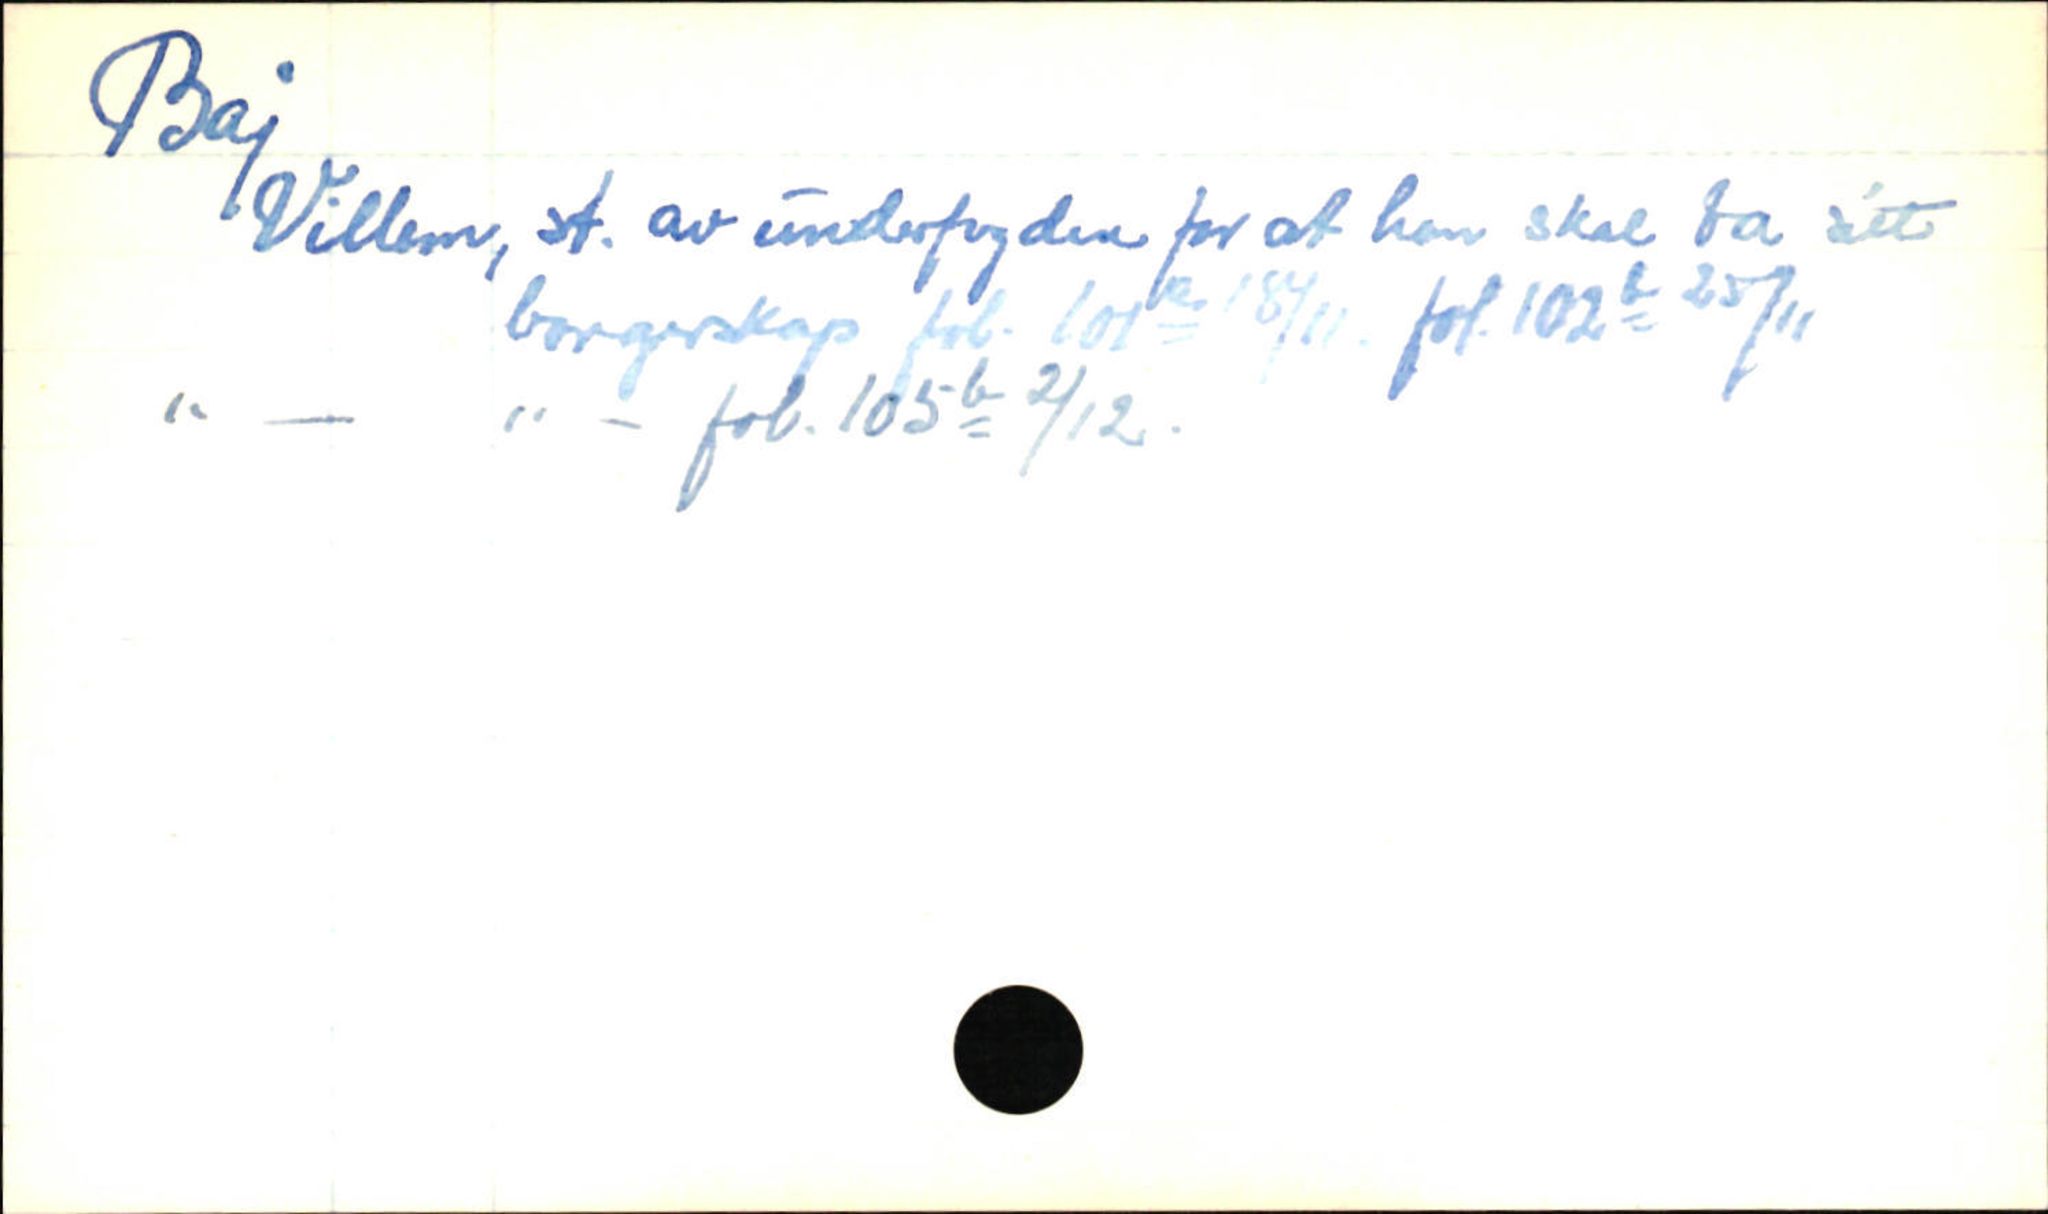 Baj
Villem, st. av underfogden for at han skal ta sitt
borgerskap fol. 101a 18/11. fol. 102b 25/11
" — " — fol. 105b 2/12.